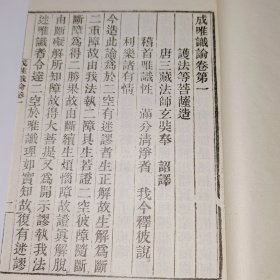 成唯識論卷第一
護法等菩薩造
唐三藏法師玄奘奉 詔譯
稽首唯識性 滿分清淨者 我今釋彼說
利樂諸有情
今造此論爲於二空有迷謬者生正解故生解爲斷
二重障故由我法執二障具生若證二空彼障隨斷
斷障爲得二勝果故由斷續生煩惱障故證眞解脫
由斷礙解所知障故得大菩提又爲開示謬執我法
迷唯識者令達二空於唯識理如實知故復有迷謬
成唯識論卷一